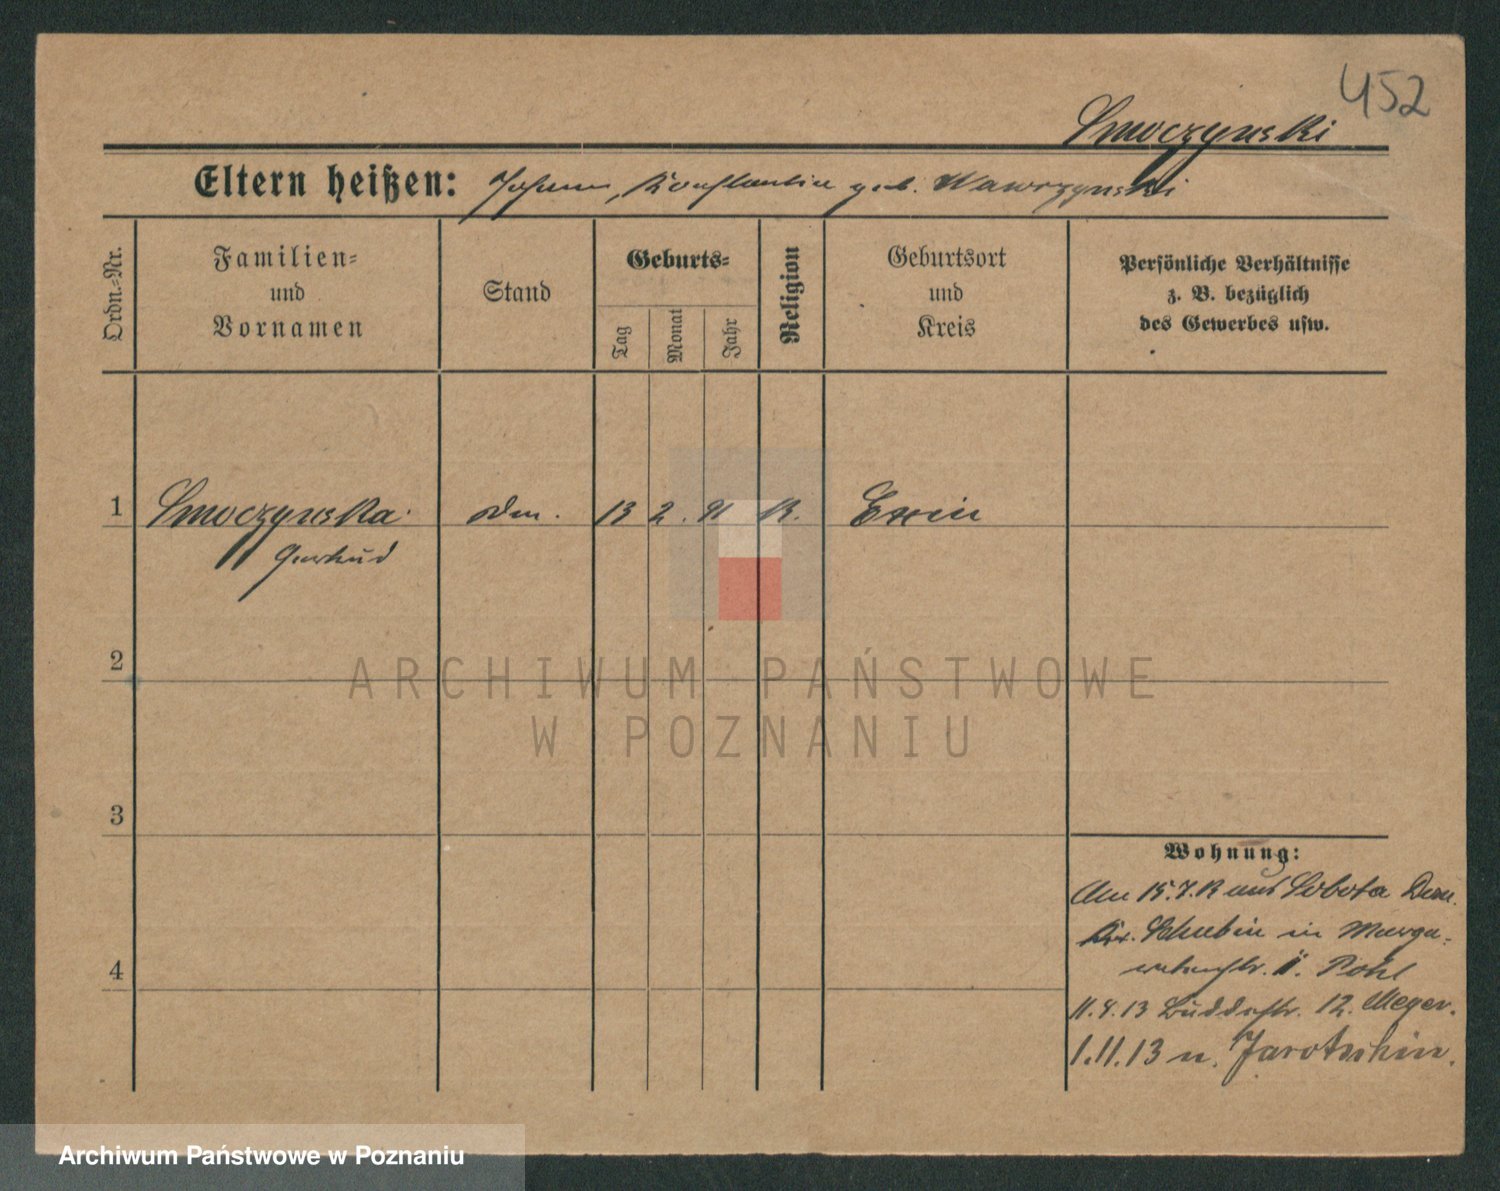 452
Smoczynski
Eltern heißen: Johann, Konstantin geb. Wawrzynski
Ordn.-Nr.
Familien-
und
Vornamen
Stand
Geburts-
Tag
Monat
Jahr
Religion
Geburtsort
und
Kreis
Persönliche Verhältnisse
z. B. bezüglich
des Gewerbes usw.
1
Smoczynska
Gertrud
13 2. 91 K. Exin
2
ARCHIWUM PAŃSTWOWE
W POZNANIU
3
Wohnung:
Am 15.7.12 aus Sobota Dom.
Kr. Schubin in
4
Pohl
11.9.13 Buddestr. 12. Meyer.
1.11.13 n. Jarotschin.
Archiwum Państwowe w Poznaniu